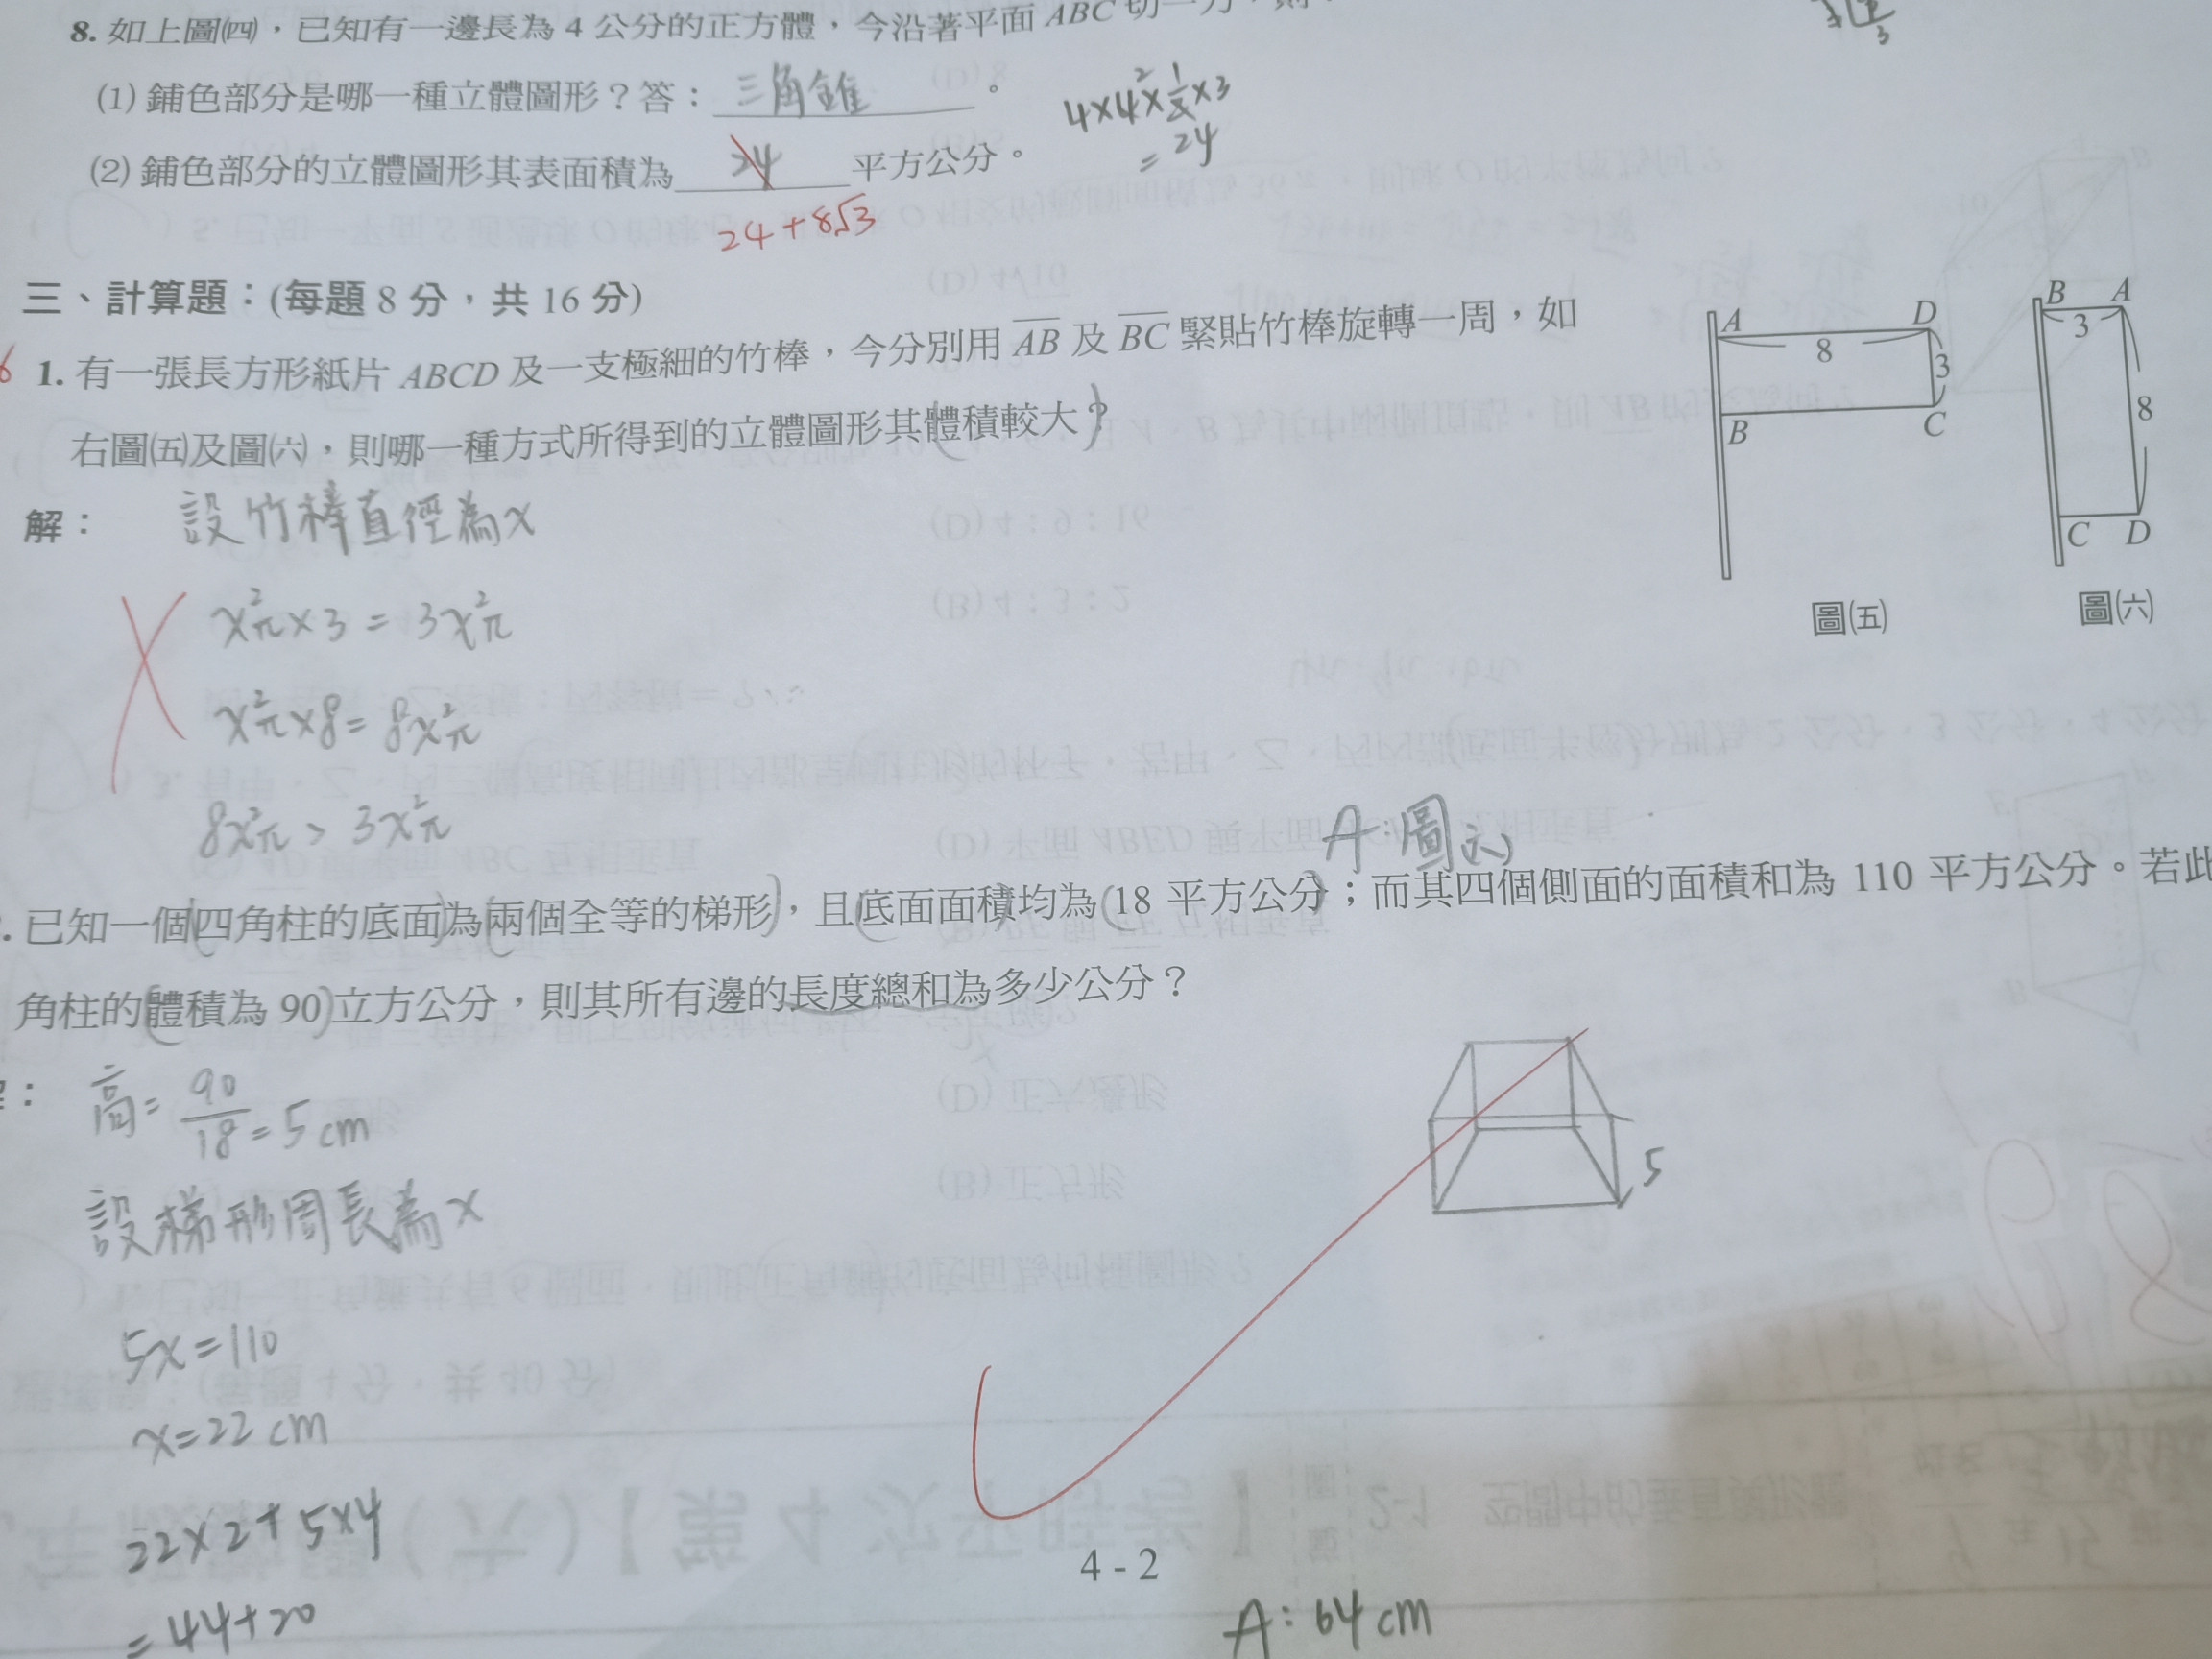 8. 如上圖㈣，已知有一邊長為 4 公分的正方體，今沿著平面 ABC 切一刀，則：
(1) 鋪色部分是哪一種立體圖形？答：三角錐。
4×4×1/2×3
=24
(2) 鋪色部分的立體圖形其表面積為 24 平方公分。
24+8√3
三、計算題：(每題 8 分，共 16 分)
1. 有一張長方形紙片 ABCD 及一支極細的竹棒，今分別用 AB 及 BC 緊貼竹棒旋轉一周，如
右圖㈤及圖㈥，則哪一種方式所得到的立體圖形其體積較大？
A D
8
3
B C
圖㈤
B A
3
8
C D
圖㈥
解：
設竹棒直徑為x
x²π×3=3x²π
x²π×8=8x²π
8x²π>3x²π
A:圖(六)
. 已知一個四角柱的底面為兩個全等的梯形，且底面面積均為 18 平方公分；而其四個側面的面積和為 110 平方公分。若此
角柱的體積為 90 立方公分，則其所有邊的長度總和為多少公分？
：
高=90/18=5cm
5
設梯形周長為x
5x=110
x=22cm
22×2+5×4
=44+20
A:64cm
4 - 2